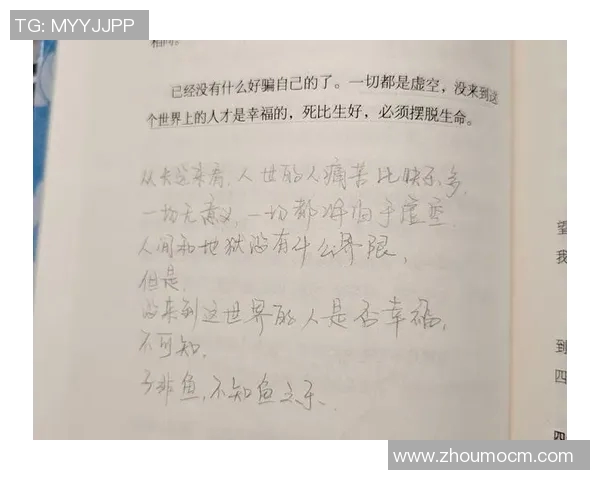 TG: MYYJJPP
相同。
已经没有什么好骗自己的了。一切都是虚空，没来到这
个世界上的人才是幸福的，死比生好，必须摆脱生命。
从长远来看，人世的人痛苦比快乐多，
一切无意义，一切都将归于虚空
人间和地狱没有什么界限，
但是，
没来到这世界的人是否幸福，
不可知，
子非鱼，不知鱼之乐、
望
我
到
四
四
www.zhoumocm.com